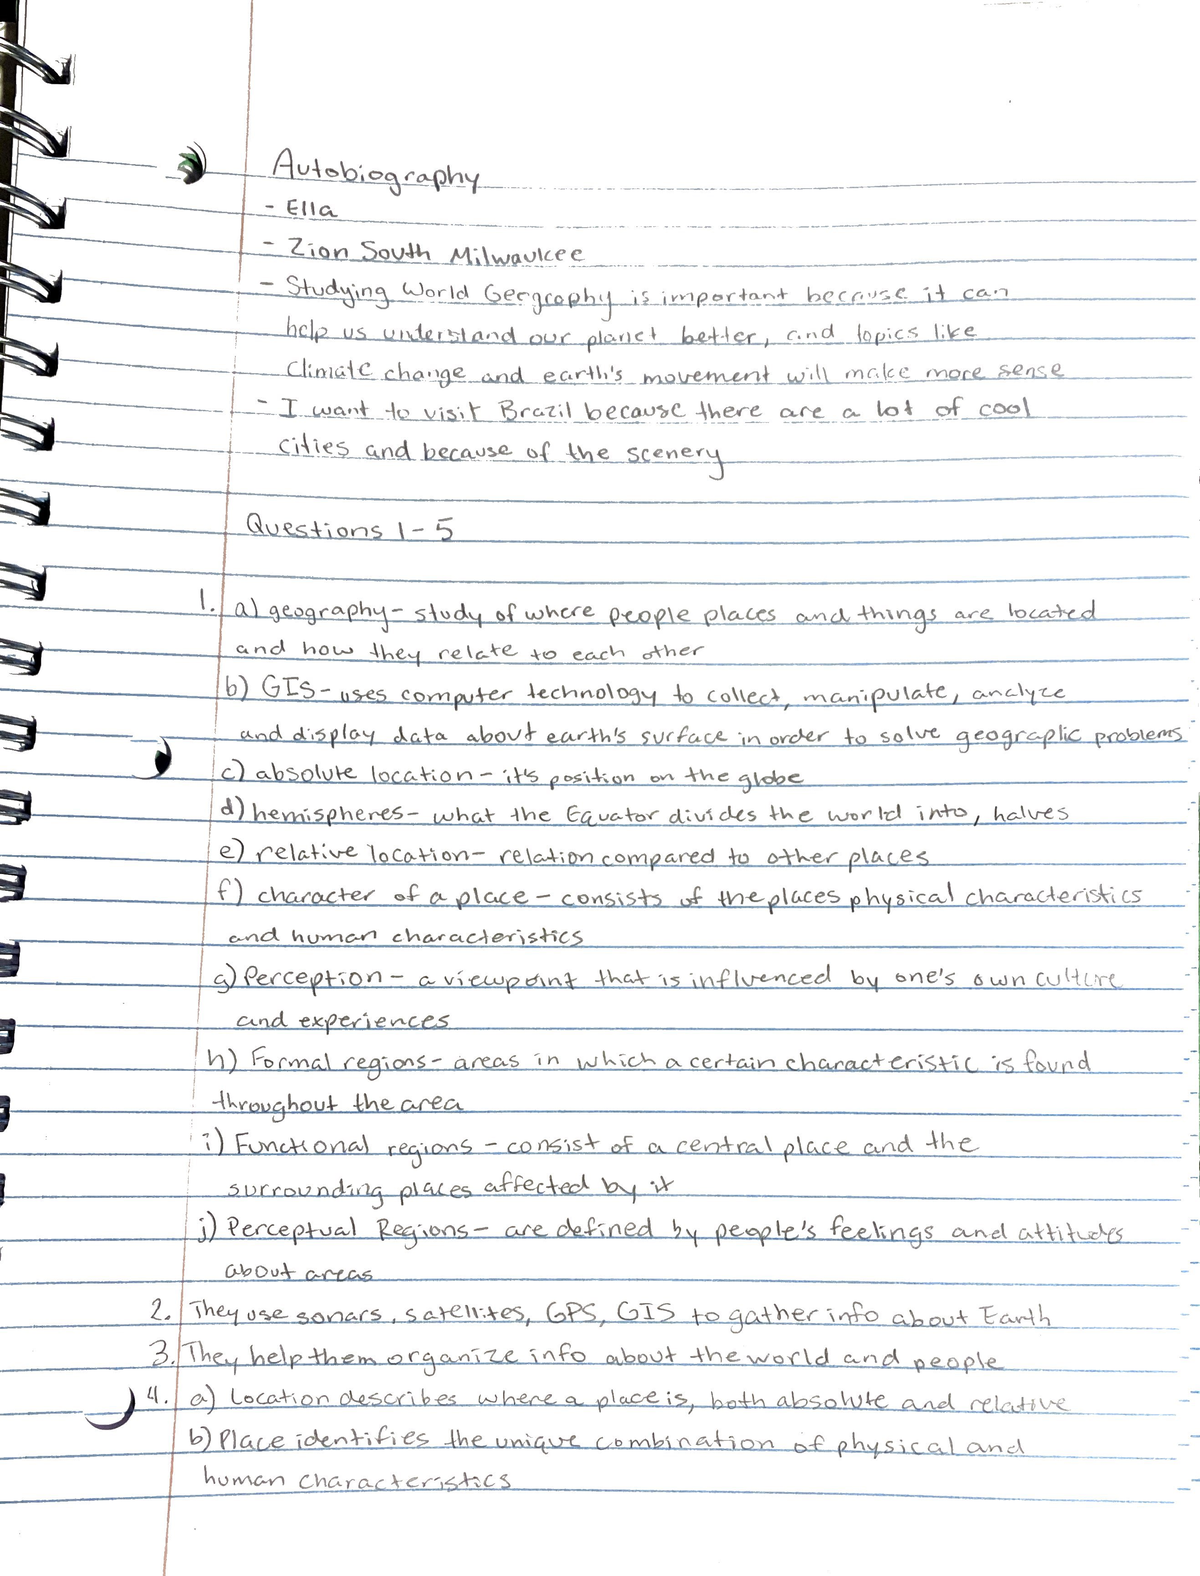 Autobiography
- Ella
- Zion South Milwaukee
- Studying World Geography is important because it can
help us understand our planet better, and topics like
Climate change and earth's movement will make more sense
- I want to visit Brazil because there are a lot of cool
cities and because of the scenery
Questions 1-5
1. a) geography- study of where people places and things are located
and how they relate to each other
b) GIS- uses computer technology to collect, manipulate, analyze
and display data about earth's surface in order to solve geographic problems
c) absolute location - it's position on the globe
d) hemispheres- what the Equator divides the world into, halves
e) relative location- relation compared to other places
f) character of a place - consists of the places physical characteristics
and human characteristics
g) Perception - a viewpoint that is influenced by one's own culture
and experiences
h) Formal regions- areas in which a certain characteristic is found
throughout the area
i) Functional regions - consist of a central place and the
surrounding places affected by it
j) Perceptual Regions- are defined by people's feelings and attitudes
about areas
2. They use sonars, satellites, GPS, GIS to gather info about Earth
3. They help them organize info about the world and people
4. a) Location describes where a place is, both absolute and relative
b) Place identifies the unique combination of physical and
human characteristics